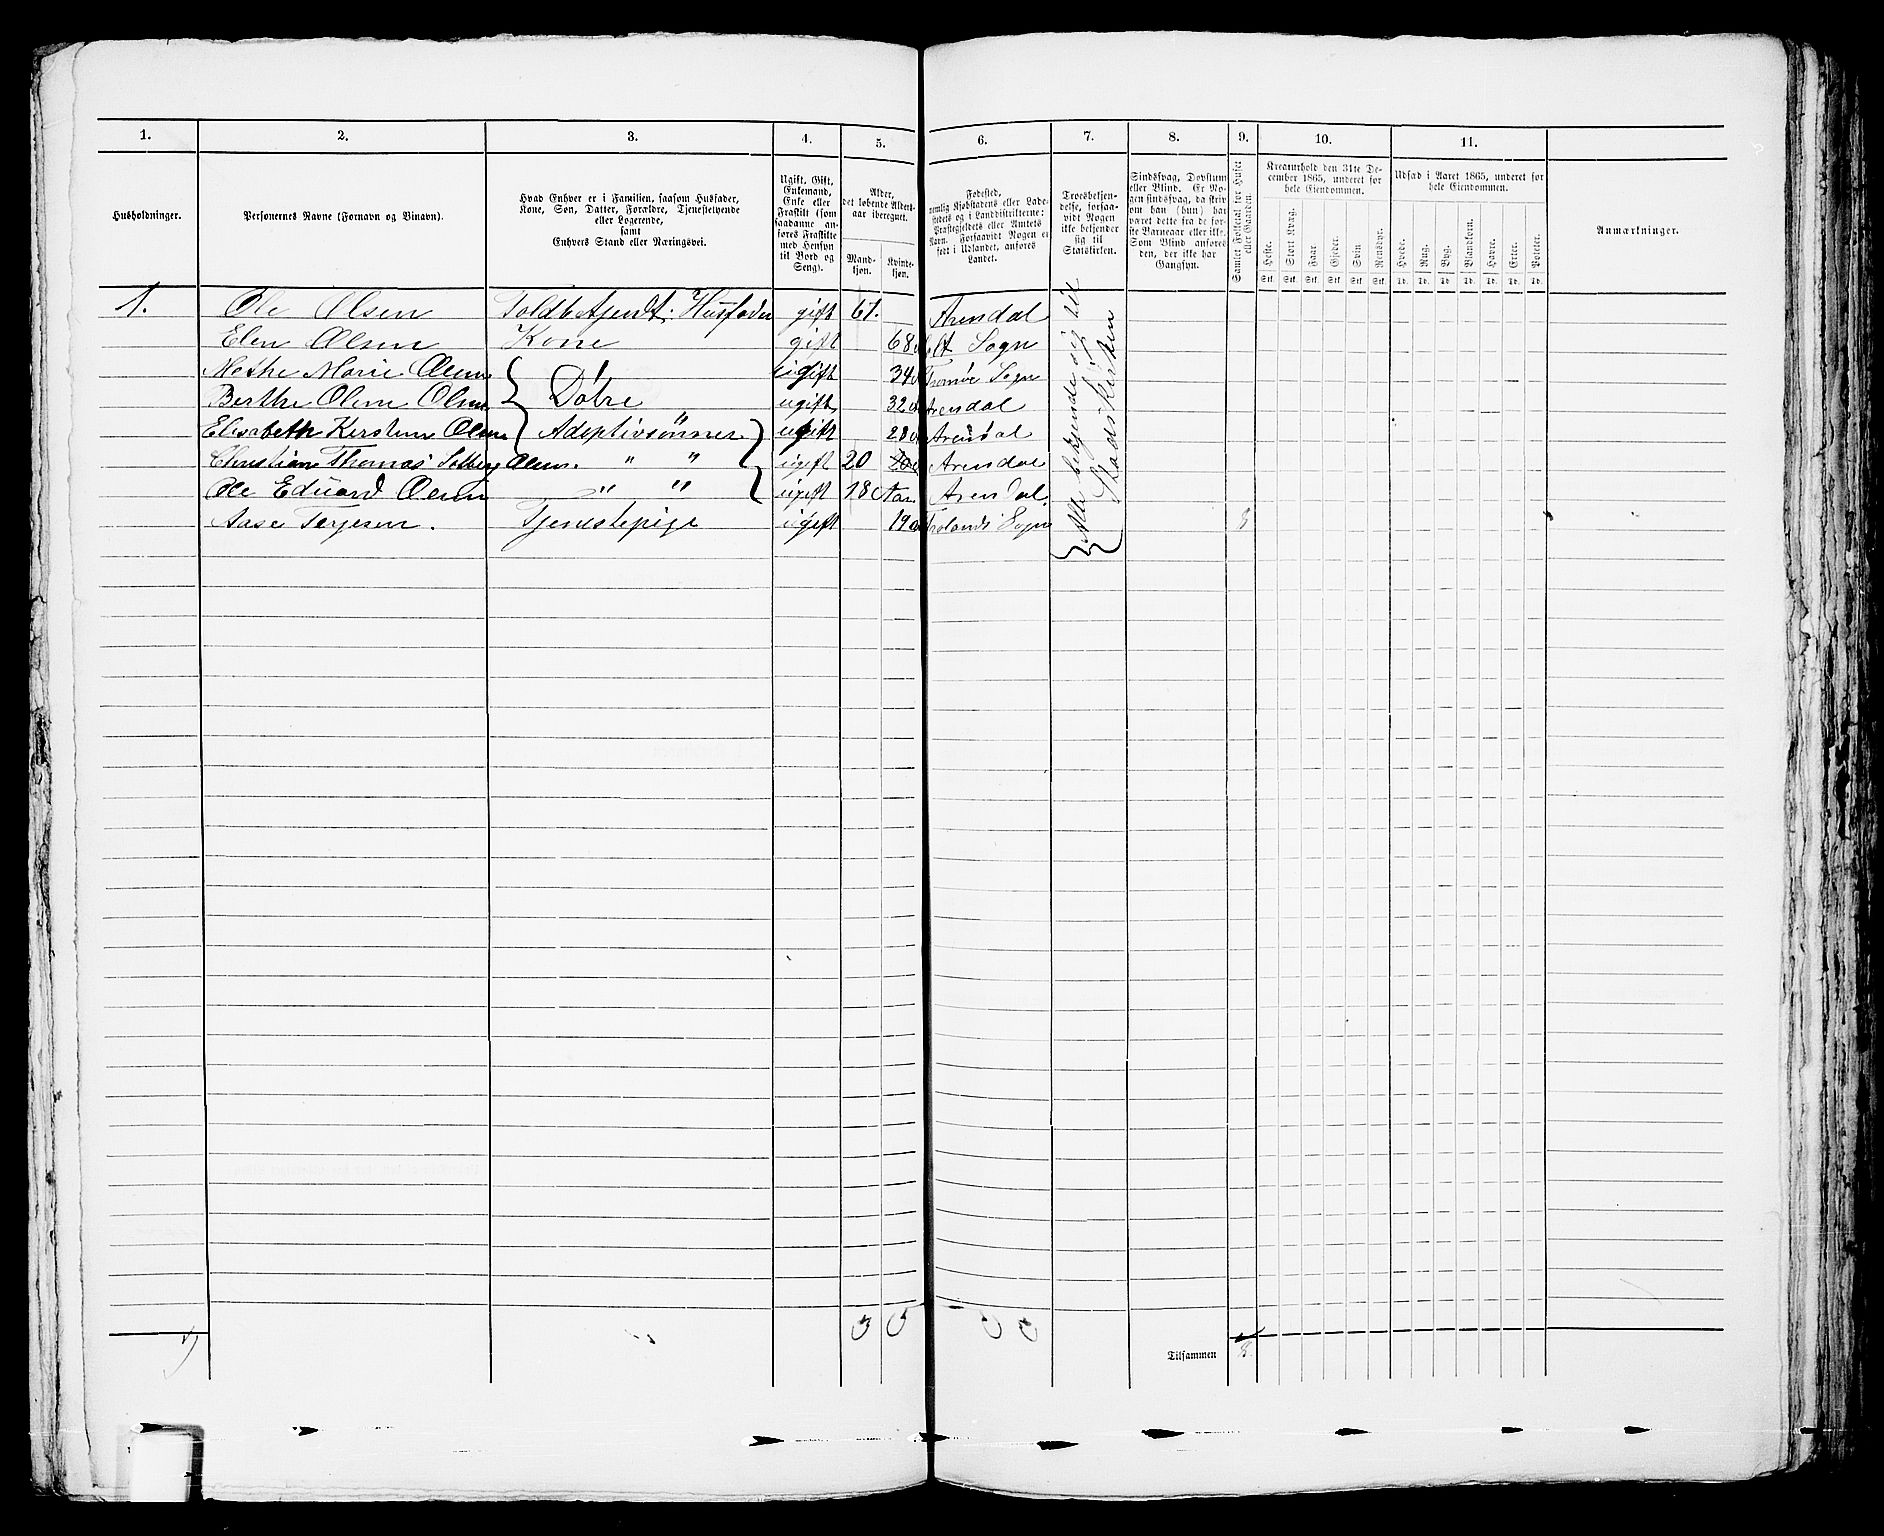 1. 2. 3. 4. 5. 6. 7. 8. 9. 10. 11.
Husholdninger.
Personernes Navne (Fornavn og Binavn).
Hvad Enhver er i Familien, saasom Husfader, Kone, Søn, Datter, Forældre, Tjenestetyende eller Logerende, samt Enhvers Stand eller Næringsvei.
Ugift, Gift, Enkemand, Enke eller Fraskilt (som saadanne anføres Fraskilte med Hensyn til Bord og Seng).
Alder, det løbende Aldersaar iberegnet.
Mandkjøn. Kvindekjøn.
Fødested, nemlig Kjøbstadens eller Ladestedets og i Landdistrikterne: Præstegjeldets eller Amtets Navn. Forsaavidt Nogen er født i Udlandet, anføres Landet.
Troesbekjendelse, forsaavidt Nogen ikke bekjender sig til Statskirken.
Sindssvag, Døvstum eller Blind. Er Nogen sindssvag, da skrives om han (hun) har været dette fra de første Barneaar eller ikke. Som Blind anføres den, der ikke har Gangsyn.
Samlet Folketal for Huset eller Gaarden.
Kreaturhold den 31te December 1865, underet for hele Eiendommen.
Heste. Stort Kvæg. Faar. Gjeder. Svin Rensdyr.
Stk. Stk. Stk. Stk. Stk. Stk.
Udsæd i Aaret 1865, underet for hele Eiendommen.
Hvede. Rug. Byg. Blandkorn. Havre. Erter. Poteter.
Td. Td. Td. Td. Td. Td. Td.
Anmærkninger.
1. Ole Olsen Toldbetjendt. Husfader gift 61. Arendal
Elen Olsen Kone gift 68 Holt Sogn
Methe Marie Olsen Døtre ugift 34 Tromøe Sogn
Berthe Oline Olsen ugift 32 Arendal
Elisabeth Kerstine Olsen Adoptivsønner ugift 28 Arendal
Christian Thomas Solberg Olsen. " " ugift 20 Arendal
Ole Eduard Olsen " " ugift 18 Aar Arendal
Aase Terjesen. Tjenestepige ugift 19 Frolands Sogn 8
Alle bekjende sig til Stadskirken
Tilsammen 8.